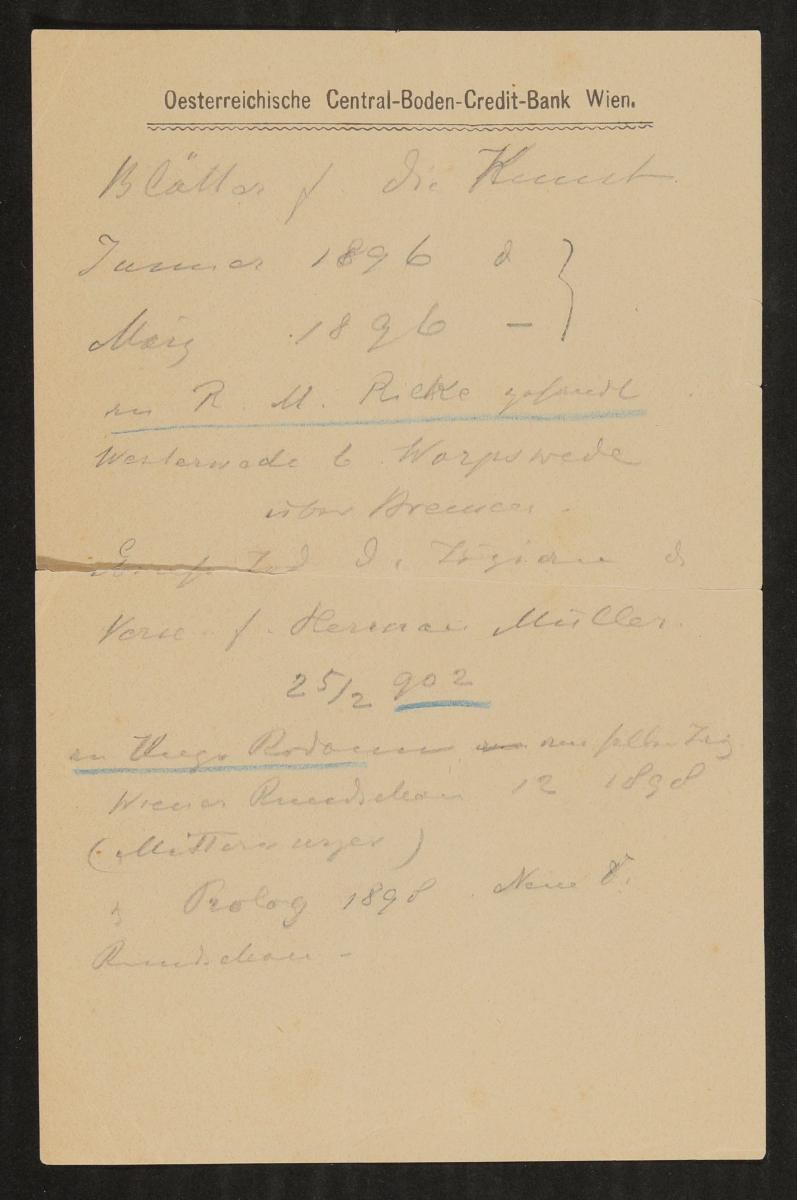 Oesterreichische Central-Boden-Credit-Bank Wien.
Blätter f. die Kunst
Januar 1896 &
März 1896 –
an R. M. Rilke gesandt
Westerwede b. Worpswede
über Bremen.
Tod d. Tizian &
Verse f. Herman Müller.
25/2 902
an Hugo am selben Tag
Wiener Rundschau 12 1898
(Mitterwurzer)
Prolog 1898. Neue
Rundschau –